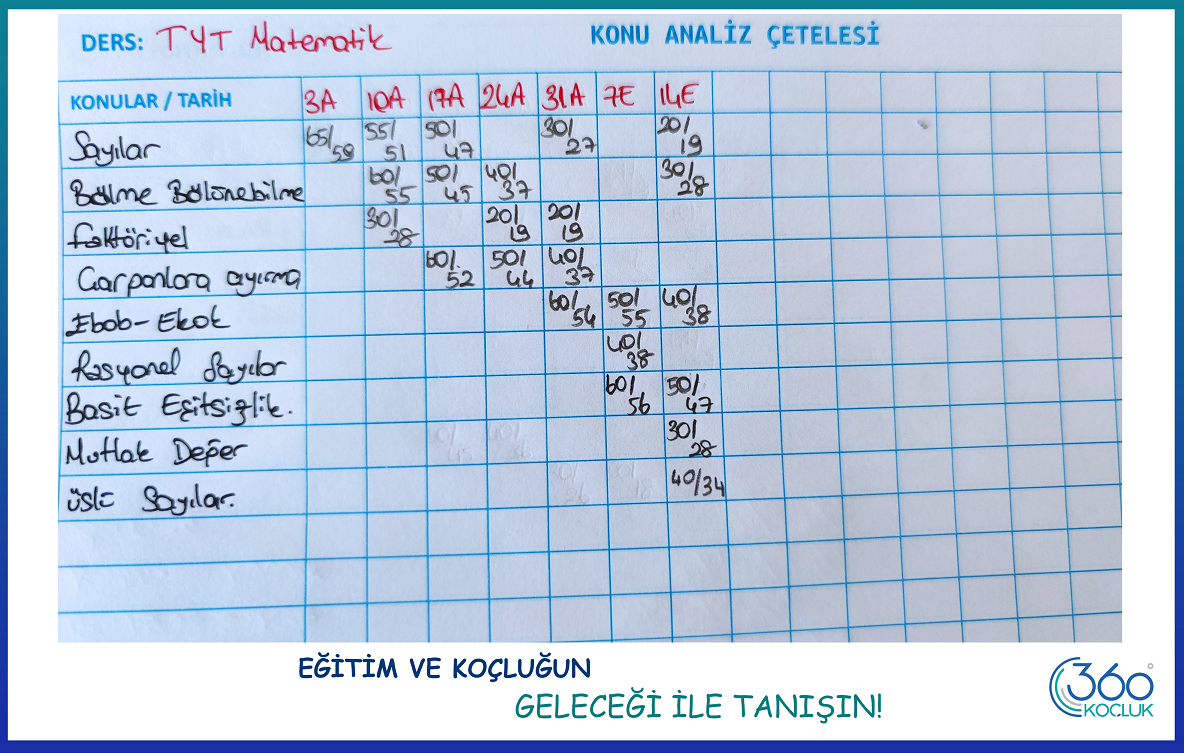 DERS: TYT Matematik
KONU ANALİZ ÇETELESİ
KONULAR / TARİH 3A 10A 17A 24A 31A 7E 14E
Sayılar 65/59 55/51 50/47 30/27 20/19
Bölme Bölünebilme 60/55 50/45 40/37 30/28
faktöriyel 30/28 20/19 20/19
Çarpanlara ayırma 60/52 50/44 40/37
Ebob-Ekok 60/54 50/55 40/38
Rasyonel Sayılar 40/38
Basit Eşitsizlik. 60/56 50/47
Mutlak Değer 30/28
üslü Sayılar. 40/34
EĞİTİM VE KOÇLUĞUN
GELECEĞİ İLE TANIŞIN!
360°
KOÇLUK